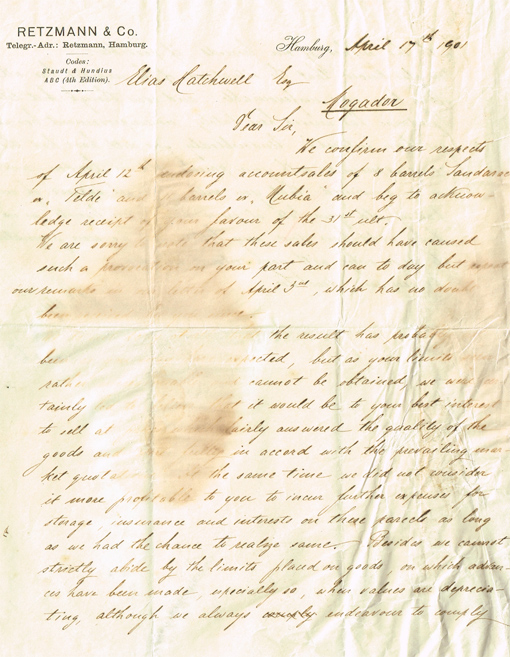 RETZMANN & Co.
Telegr.-Adr.: Retzmann, Hamburg.
Codes:
Staudt & Hundius
ABC (4th Edition).
Hamburg, April 17th 1901
Elias Hatchwell Esq
Mogador
Dear Sir,
We confirm our respects
of April 12th enclosing accountsales of 8 barrels Sandarac
"Telde" and barrels "Nubia" and beg to acknow-
ledge receipt of your favour of the 31st ult.
We are sorry to note that these sales should have caused
such a provocation on your part and can to day but
our remarks in letter of April 3rd, which has no doubt
been
the result has
expected, but as your limits
cannot be obtained, we were
tainly that it would be to your best interest
to sell at fairly answered the quality of the
goods and in accord with the prevailing mar-
ket At the same time we did not consider
it more profitable to you to incur further expenses for
storage, insurance and interests on these parcels as long
as we had the chance to realize same. Besides we cannot
strictly abide by the limits placed on goods, on which advan-
ces have been made, especially so, when values are deprecia-
ting, although we always endeavour to comply